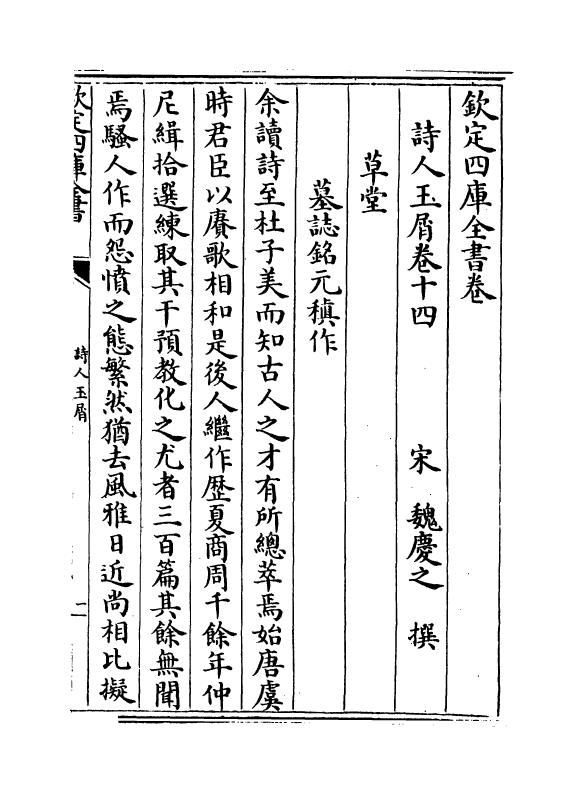 欽定四庫全書卷
詩人玉屑卷十四　宋　魏慶之　撰
草堂
墓誌銘元稹作
余讀詩至杜子美而知古人之才有所總萃焉始唐虞
時君臣以賡歌相和是後人繼作歴夏商周千餘年仲
尼緝拾選練取其干預教化之尤者三百篇其餘無聞
焉騷人作而怨憤之態繁然猶去風雅日近尚相比擬
欽定四庫全書
詩人玉屑